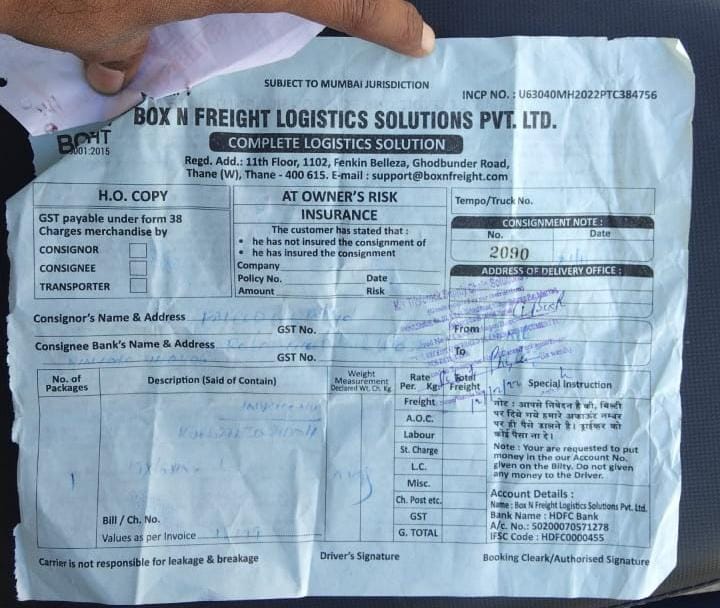 SUBJECT TO MUMBAI JURISDICTION
INCP NO. : U63040MH2022PTC384756
BOX N FREIGHT LOGISTICS SOLUTIONS PVT. LTD.
9001:2015
COMPLETE LOGISTICS SOLUTION
Regd. Add.: 11th Floor, 1102, Fenkin Belleza, Ghodbunder Road,
Thane (W), Thane - 400 615. E-mail : support@boxnfreight.com
H.O. COPY
GST payable under form 38
Charges merchandise by
CONSIGNOR
CONSIGNEE
TRANSPORTER
AT OWNER'S RISK
INSURANCE
The customer has stated that :
• he has not insured the consignment of
• he has insured the consignment
Company
Policy No. Date
Amount Risk
Tempo/Truck No.
CONSIGNMENT NOTE :
No. Date
2090
ADDRESS OF DELIVERY OFFICE :
Consignor's Name & Address
GST No.
From
Consignee Bank's Name & Address
GST No.
To
No. of Packages
Description (Said of Contain)
Weight
Measurement
Declared Wt. Ch. Kg
Rate Per. Kg.
Total Freight
Special Instruction
1
Freight
A.O.C.
Labour
St. Charge
L.C.
Misc.
Ch. Post etc.
GST
G. TOTAL
नोट : आपसे निवेदन है की, बिल्टी
पर दिये गये हमारे अकाऊंट नम्बर
पर ही पैसे डालने है। ड्राईवर को
कोई पैसा ना दे।
Note : Your are requested to put
money in the our Account No.
given on the Bilty. Do not given
any money to the Driver.
Account Details :
Name : Box N Freight Logistics Solutions Pvt. Ltd.
Bank Name : HDFC Bank
A/c. No.: 50200070571278
IFSC Code : HDFC0000455
Bill / Ch. No.
Values as per Invoice
Carrier is not responsible for leakage & breakage
Driver's Signature
Booking Cleark/Authorised Signature